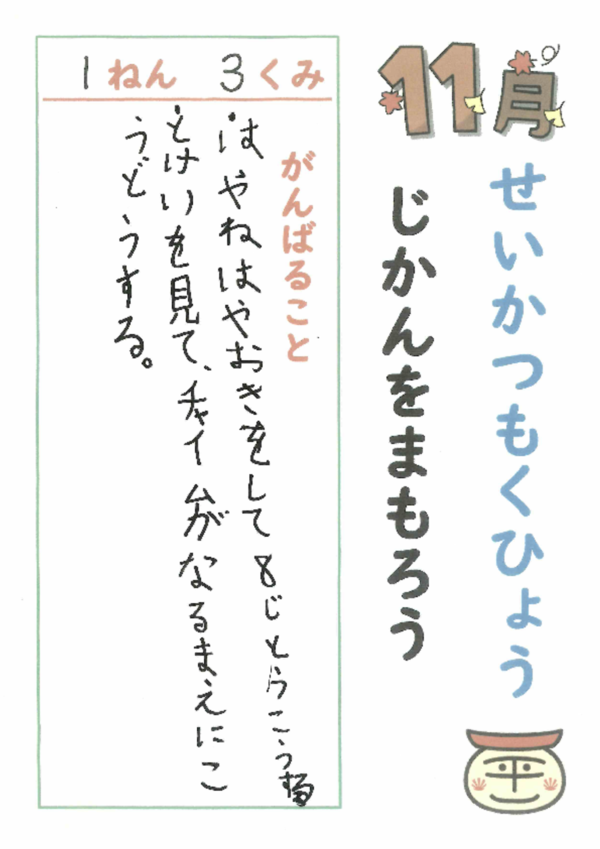 11月
せいかつもくひょう
じかんをまもろう
1ねん 3くみ
がんばること
・はやねはやおきをして8じとうこうする
・とけいを見て、チャイムがなるまえにこ
うどうする。